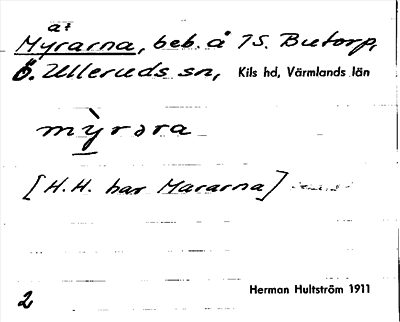 at
Myrarna, beb. å 7S. Butorp,
Ö. Ulleruds sn, Kils hd, Värmlands län
mỳrəra
[H.H. har Mararna]
2 Herman Hultström 1911